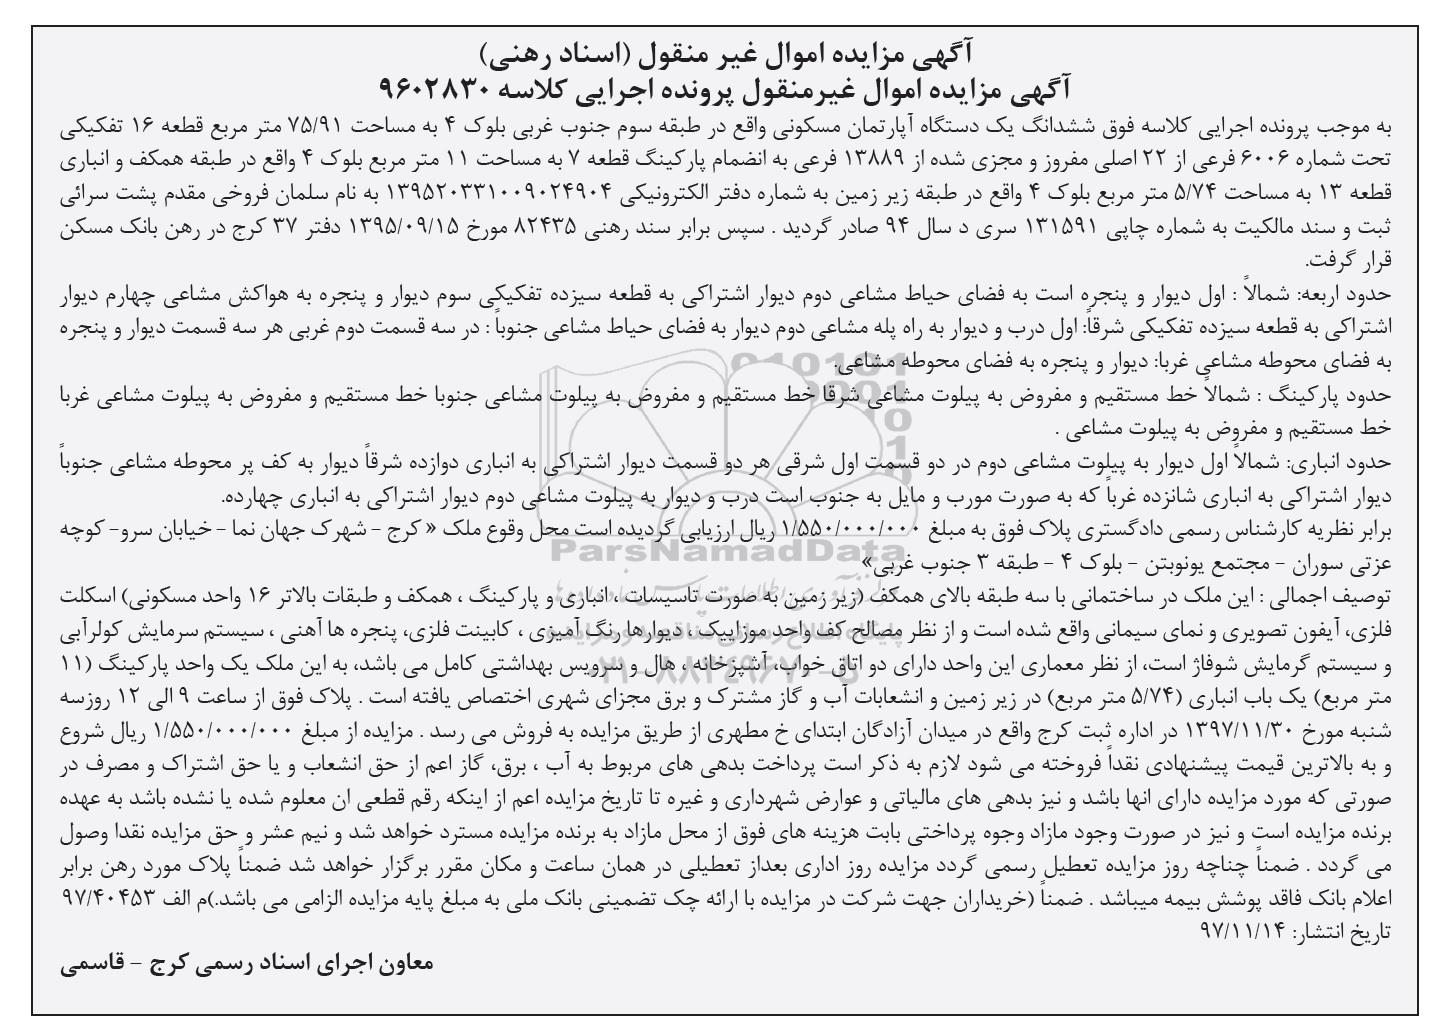 آگهی مزایده اموال غیر منقول (اسناد رهنی)
آگهی مزایده اموال غیرمنقول پرونده اجرایی کلاسه ۹۶۰۲۸۳۰
به موجب پرونده اجرایی کلاسه فوق ششدانگ یک دستگاه آپارتمان مسکونی واقع در طبقه سوم جنوب غربی بلوک ۴ به مساحت ۷۵/۹۱ متر مربع قطعه ۱۶ تفکیکی
تحت شماره ۶۰۰۶ فرعی از ۲۲ اصلی مفروز و مجزی شده از ۱۳۸۸۹ فرعی به انضمام پارکینگ قطعه ۷ به مساحت ۱۱ متر مربع بلوک ۴ واقع در طبقه همکف و انباری
قطعه ۱۳ به مساحت ۵/۷۴ متر مربع بلوک ۴ واقع در طبقه زیر زمین به شماره دفتر الکترونیکی ۱۳۹۵۲۰۳۳۱۰۰۹۰۲۴۹۰۴ به نام سلمان فروخی مقدم پشت سرائی
ثبت و سند مالکیت به شماره چاپی ۱۳۱۵۹۱ سری د سال ۹۴ صادر گردید . سپس برابر سند رهنی ۸۲۴۳۵ مورخ ۱۳۹۵/۰۹/۱۵ دفتر ۳۷ کرج در رهن بانک مسکن
قرار گرفت.
حدود اربعه: شمالاً : اول دیوار و پنجره است به فضای حیاط مشاعی دوم دیوار اشتراکی به قطعه سیزده تفکیکی سوم دیوار و پنجره به هواکش مشاعی چهارم دیوار
اشتراکی به قطعه سیزده تفکیکی شرقاً: اول درب و دیوار به راه پله مشاعی دوم دیوار به فضای حیاط مشاعی جنوباً : در سه قسمت دوم غربی هر سه قسمت دیوار و پنجره
به فضای محوطه مشاعی غربا: دیوار و پنجره به فضای محوطه مشاعی.
حدود پارکینگ : شمالاً خط مستقیم و مفروض به پیلوت مشاعی شرقا خط مستقیم و مفروض به پیلوت مشاعی جنوبا خط مستقیم و مفروض به پیلوت مشاعی غربا
خط مستقیم و مفروض به پیلوت مشاعی .
حدود انباری: شمالاً اول دیوار به پیلوت مشاعی دوم در دو قسمت اول شرقی هر دو قسمت دیوار اشتراکی به انباری دوازده شرقاً دیوار به کف پر محوطه مشاعی جنوباً
دیوار اشتراکی به انباری شانزده غرباً که به صورت مورب و مایل به جنوب است درب و دیوار به پیلوت مشاعی دوم دیوار اشتراکی به انباری چهارده.
برابر نظریه کارشناس رسمی دادگستری پلاک فوق به مبلغ ۱/۵۵۰/۰۰۰/۰۰۰ ریال ارزیابی گردیده است محل وقوع ملک « کرج - شهرک جهان نما - خیابان سرو- کوچه
عزتی سوران - مجتمع یونوبتن - بلوک ۴ - طبقه ۳ جنوب غربی»
توصیف اجمالی : این ملک در ساختمانی با سه طبقه بالای همکف (زیر زمین به صورت تاسیسات ، انباری و پارکینگ ، همکف و طبقات بالاتر ۱۶ واحد مسکونی) اسکلت
فلزی، آیفون تصویری و نمای سیمانی واقع شده است و از نظر مصالح کف واحد موزاییک ، دیوارها رنگ آمیزی ، کابینت فلزی، پنجره ها آهنی ، سیستم سرمایش کولرآبی
و سیستم گرمایش شوفاژ است، از نظر معماری این واحد دارای دو اتاق خواب، آشپزخانه ، هال و سرویس بهداشتی کامل می باشد، به این ملک یک واحد پارکینگ (۱۱
متر مربع) یک باب انباری (۵/۷۴ متر مربع) در زیر زمین و انشعابات آب و گاز مشترک و برق مجزای شهری اختصاص یافته است . پلاک فوق از ساعت ۹ الی ۱۲ روزسه
شنبه مورخ ۱۳۹۷/۱۱/۳۰ در اداره ثبت کرج واقع در میدان آزادگان ابتدای خ مطهری از طریق مزایده به فروش می رسد . مزایده از مبلغ ۱/۵۵۰/۰۰۰/۰۰۰ ریال شروع
و به بالاترین قیمت پیشنهادی نقداً فروخته می شود لازم به ذکر است پرداخت بدهی های مربوط به آب ، برق، گاز اعم از حق انشعاب و یا حق اشتراک و مصرف در
صورتی که مورد مزایده دارای انها باشد و نیز بدهی های مالیاتی و عوارض شهرداری و غیره تا تاریخ مزایده اعم از اینکه رقم قطعی ان معلوم شده یا نشده باشد به عهده
برنده مزایده است و نیز در صورت وجود مازاد وجوه پرداختی بابت هزینه های فوق از محل مازاد به برنده مزایده مسترد خواهد شد و نیم عشر و حق مزایده نقدا وصول
می گردد . ضمناً چناچه روز مزایده تعطیل رسمی گردد مزایده روز اداری بعداز تعطیلی در همان ساعت و مکان مقرر برگزار خواهد شد ضمناً پلاک مورد رهن برابر
اعلام بانک فاقد پوشش بیمه میباشد . ضمناً (خریداران جهت شرکت در مزایده با ارائه چک تضمینی بانک ملی به مبلغ پایه مزایده الزامی می باشد.)م الف ۹۷/۴۰۴۵۳
تاریخ انتشار: ۹۷/۱۱/۱۴
معاون اجرای اسناد رسمی کرج - قاسمی
ParsNamadData